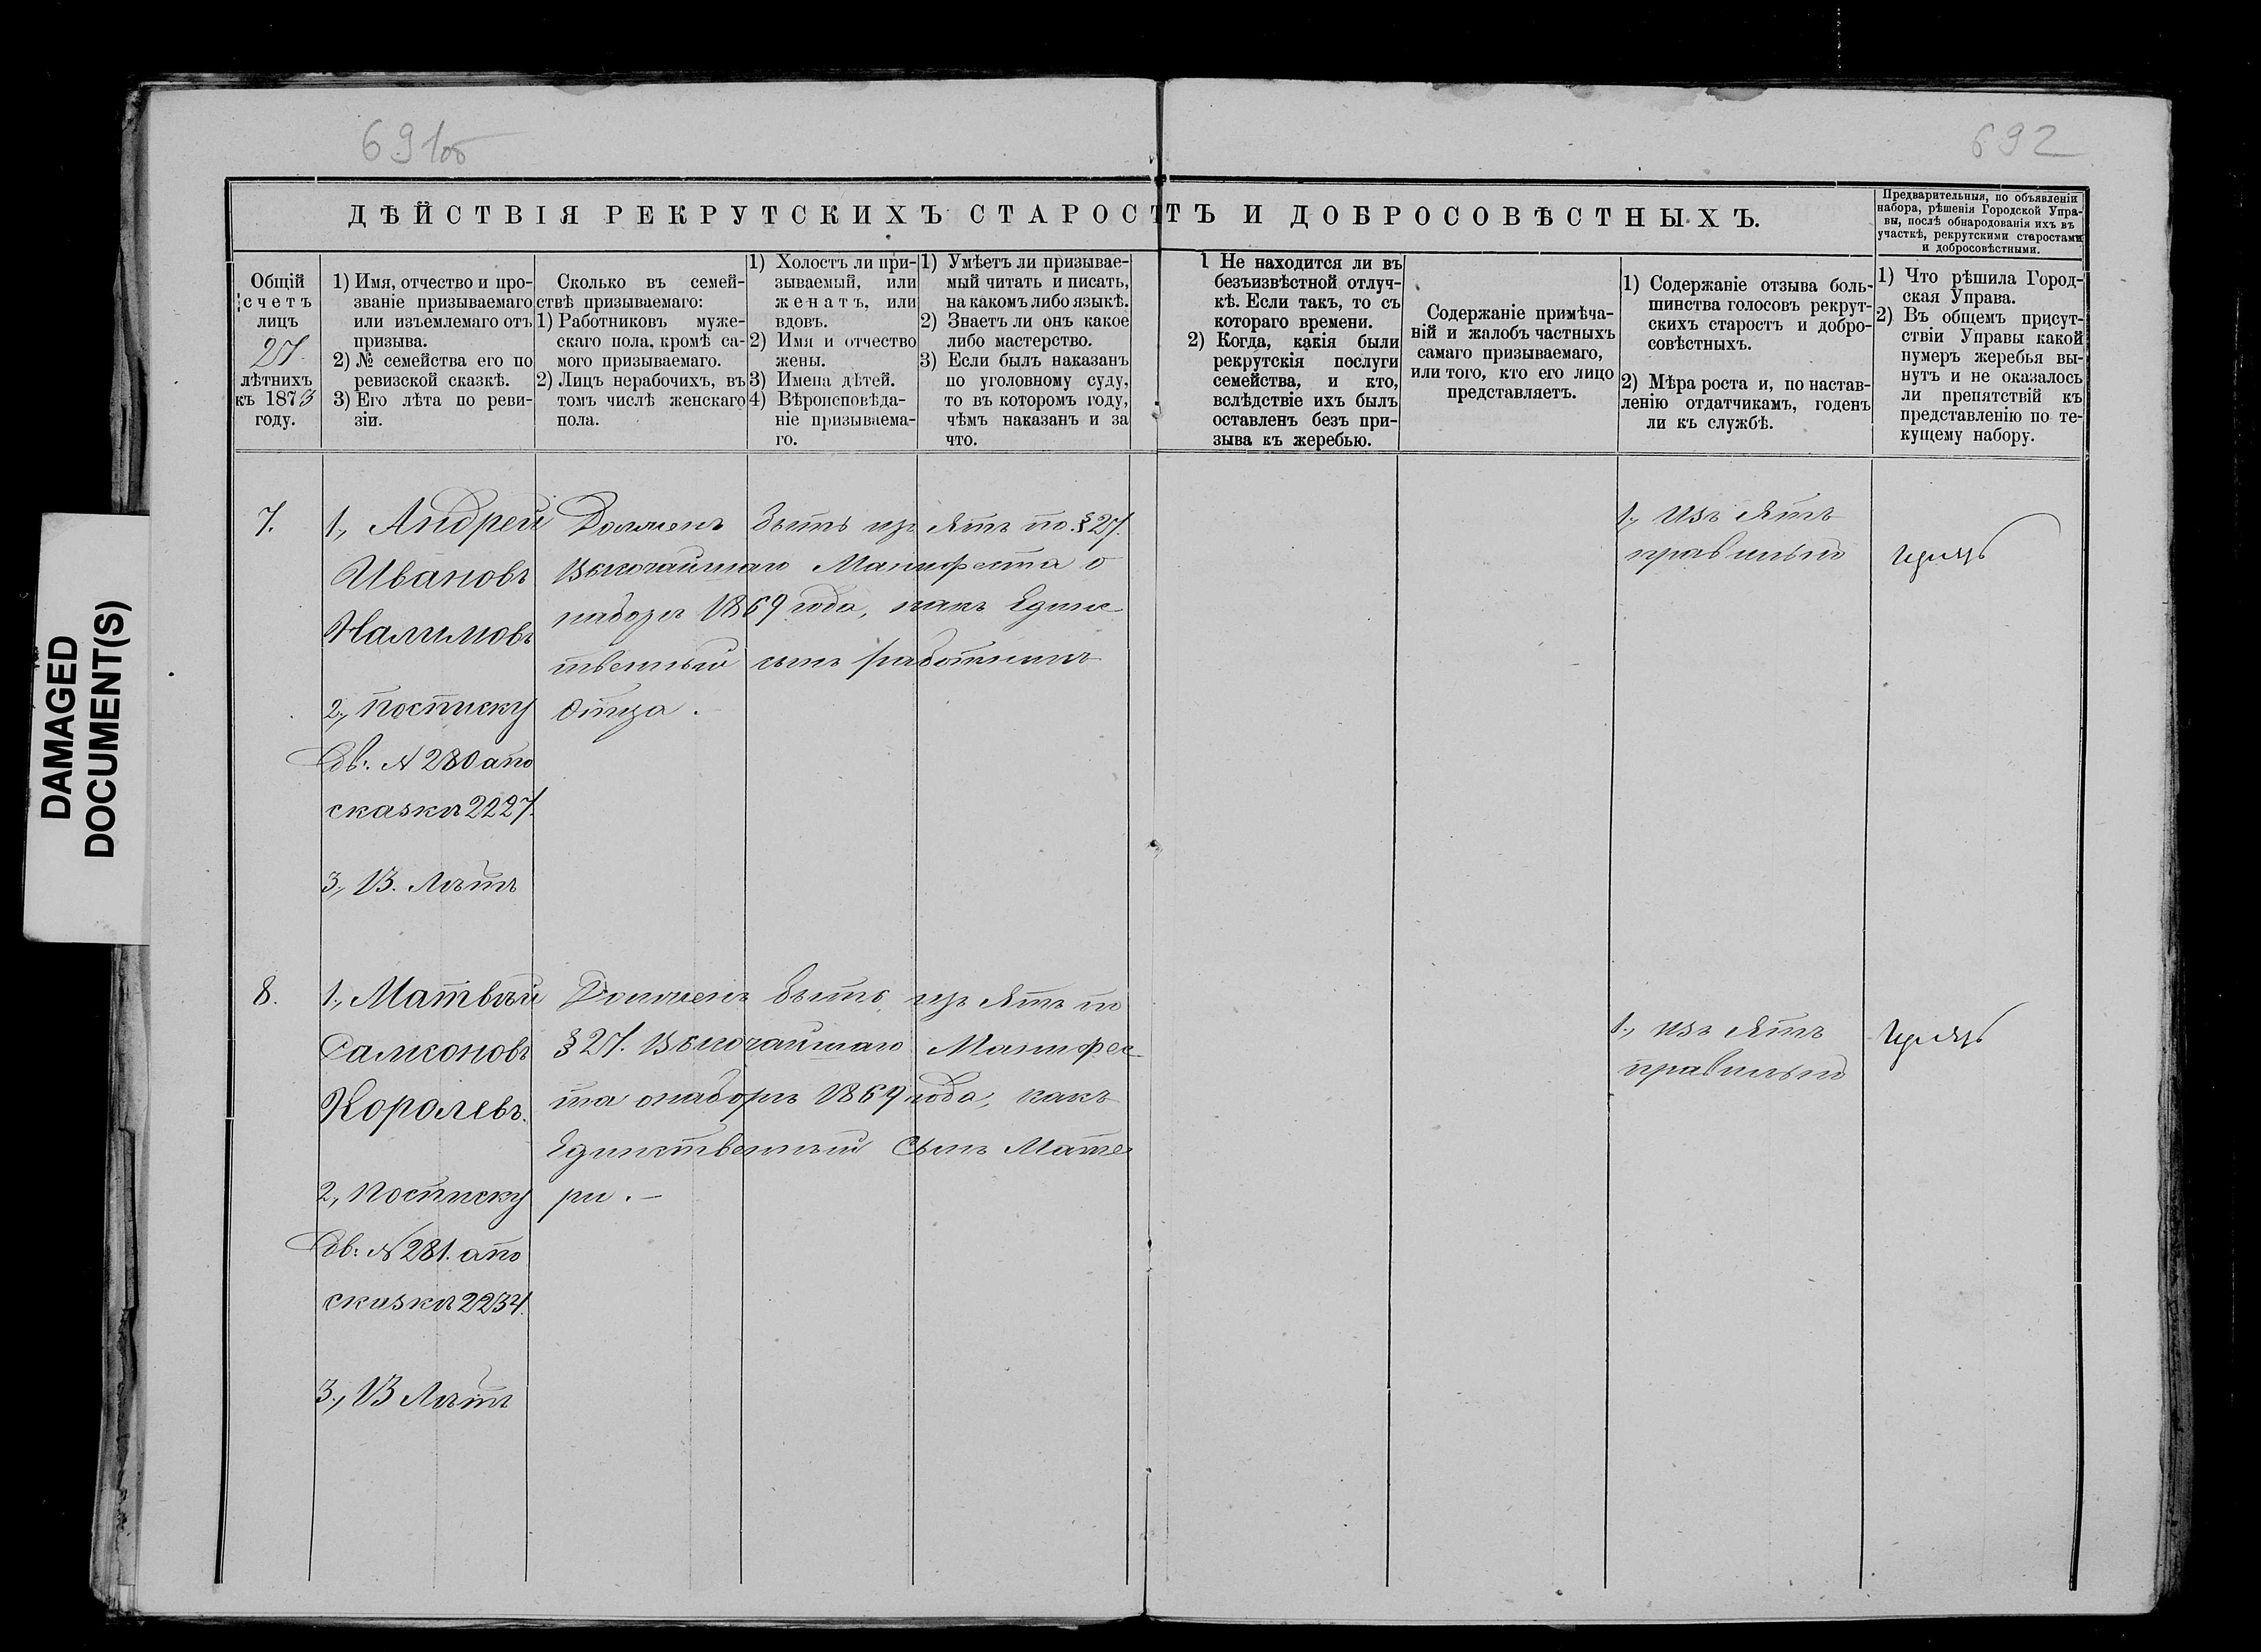 691об
692
ДѢЙСТВІЯ РЕКРУТСКИХЪ СТАРОСТЪ И ДОБРОСОВѢСТНЫХЪ.
Предварительныя, по объявленіи
набора, рѣшенія Городской Упра-
вы, послѣ обнародованія ихъ въ
участкѣ, рекрутскими старостами
и добросовѣстными.
Общій
счетъ
лицъ
27
лѣтнихъ
къ 1873
году.
1) Имя, отчество и про-
званіе призываемаго
или изъемлемаго отъ
призыва.
2) № семейства его по
ревизской сказкѣ.
3) Его лѣта по реви-
зіи.
Сколько въ семей-
ствѣ призываемаго:
1) Работниковъ муже-
скаго пола, кромѣ са-
мого призываемаго.
2) Лицъ нерабочихъ, въ
томъ числѣ женскаго
пола.
1) Холостъ ли при-
зываемый, или
женатъ, или
вдовъ.
2) Имя и отчество
жены.
3) Имена дѣтей.
4) Вѣроисповѣда-
ніе призываема-
го.
1) Умѣетъ ли призывае-
мый читать и писать,
на какомъ либо языкѣ.
2) Знаетъ ли онъ какое
либо мастерство.
3) Если былъ наказанъ
по уголовному суду,
то въ которомъ году,
чѣмъ наказанъ и за
что.
1 Не находится ли въ
безъизвѣстной отлуч-
кѣ. Если такъ, то съ
котораго времени.
2) Когда, какія были
рекрутскія послуги
семейства, и кто,
вслѣдствіе ихъ былъ
оставленъ безъ при-
зыва къ жеребью.
Содержаніе примѣча-
ній и жалобъ частныхъ
самаго призываемаго,
или того, кто его лицо
представляетъ.
1) Содержаніе отзыва боль-
шинства голосовъ рекрут-
скихъ старостъ и добро-
совѣстныхъ.
2) Мѣра роста и, по настав-
ленію отдатчикамъ, годенъ
ли къ службѣ.
1) Что рѣшила Город-
ская Управа.
2) Въ общемъ присут-
ствіи Управы какой
нумеръ жеребья вы-
нутъ и не оказалось
ли препятствій къ
представленію по те-
кущему набору.
7.
1., Андрей
Ивановъ
Налимовъ
2., По списку
Дв: № 280 а по
сказкѣ 2227.
3., 13. Лѣтъ
Долженъ быть изъятъ по § 27.
Высочайшаго Манифеста о
наборѣ 1869 года, какъ Единс-
твенный сынъ работникъ
Отца.
1., Изъятъ
правильно
8.
1., Матвѣй
Самсоновъ
Королевъ.
2., По списку
Дв: № 281. а по
сказкѣ 2234.
3., 13 Лѣтъ
Долженъ быть изъятъ по
§ 27. Высочайшаго Манифес-
та о наборѣ 1869 года, какъ
Единственный Сынъ Мате
ри. –
1., изъятъ
правильно
DAMAGED
DOCUMENT(S)